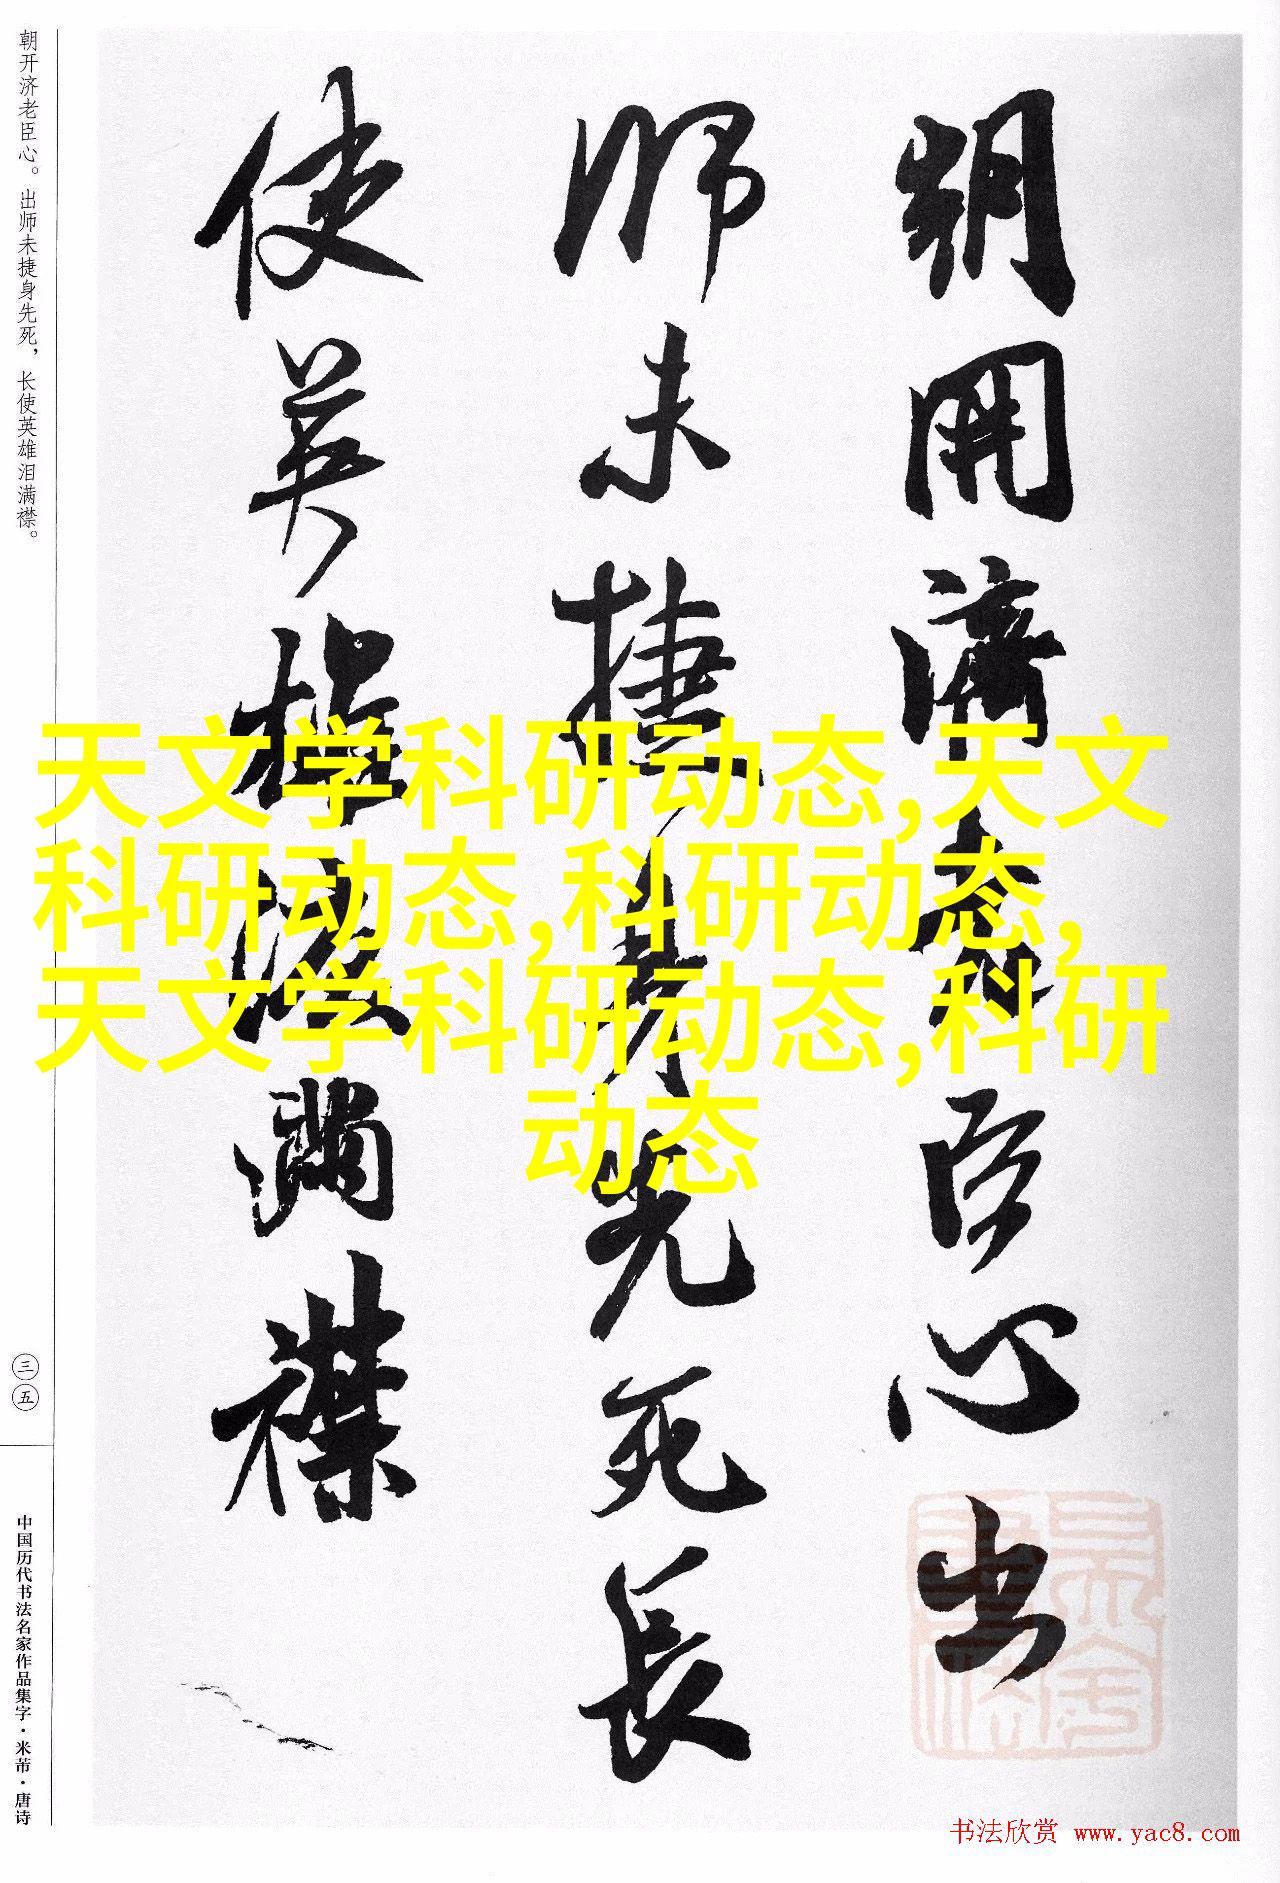 朝開濟老臣心出
師未捷身先死長
使英雄淚滿襟
朝开济老臣心。出师未捷身先死，长使英雄泪满襟。
三五
中国历代书法名家作品集字·米芾·唐诗
天文学科研动态,天文
科研动态,科研动态,
天文学科研动态,科研
动态
书法欣赏 www.yac8.com